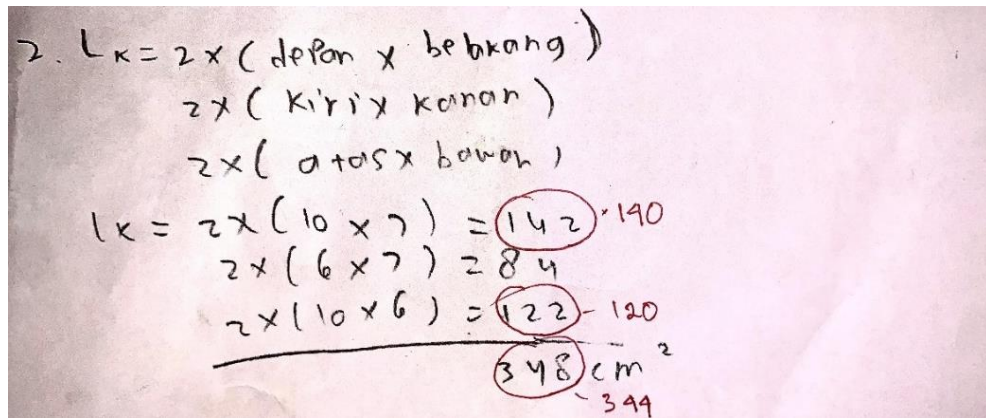 2. Lk = 2 x ( depan x belakang )
2 x ( kiri x kanan )
2 x ( atas x bawah )
lk = 2 x ( 10 x 7 ) = 142 · 140
2 x ( 6 x 7 ) = 84
2 x ( 10 x 6 ) = 122 - 120
348 cm²
- 344